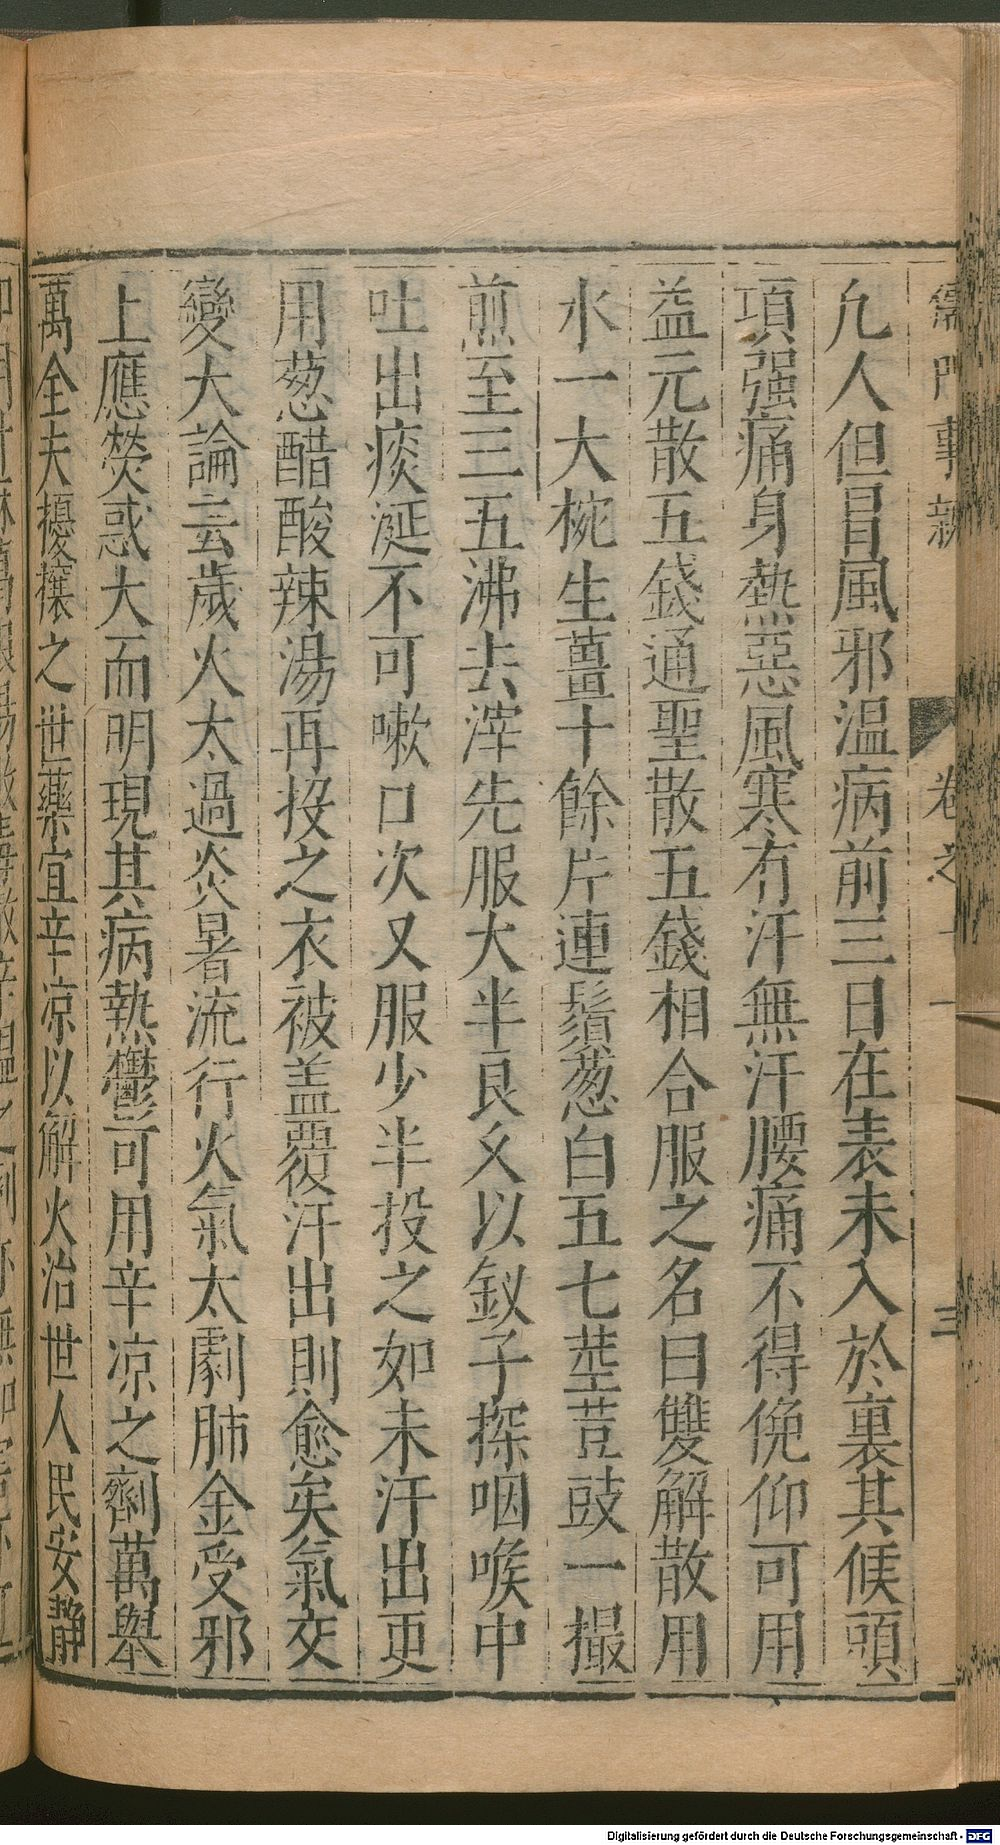 儒門事親
卷之十一
三
凢人但冒風邪温病前三日在表未入於裏其候頭
項强痛身熱惡風寒有汗無汗腰痛不得俛仰可用
益元散五錢通聖散五錢相合服之名曰雙解散用
水一大椀生薑十餘片連鬚葱白五七莖荳豉一撮
煎至三五沸去滓先服大半良乆以釵子探咽喉中
吐出痰涎不可嗽口次又服少半投之如未汗出更
用葱醋酸辣湯再投之衣被盖覆汗出則愈矣氣交
變大論云歲火太過炎暑流行火氣太劇肺金受邪
上應熒惑大而明現其病熱鬱可用辛凉之劑萬舉
萬全夫擾攘之世藥宜辛凉以解火治世人民安静
Digitalisierung gefördert durch die Deutsche Forschungsgemeinschaft - DFG